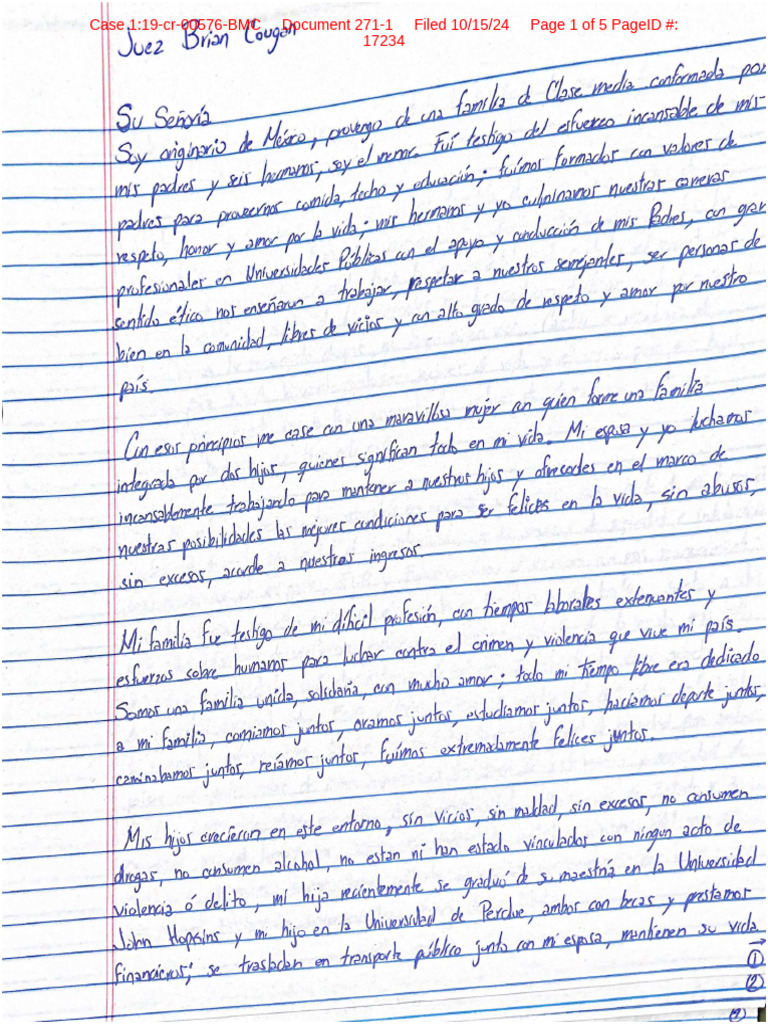 Case 1:19-cr-00576-BMC Document 271-1 Filed 10/15/24 Page 1 of 5 PageID #:
17234
Juez Brian Cougan
Su Señoría
Soy originario de México, provengo de una familia de Clase media conformada por
mis padres y seis hermanos, soy el menor. Fuí testigo del esfuerzo incansable de mis
padres para proveernos comida, techo y educación; fuímos formados con valores de
respeto, honor y amor por la vida; mis hermanos y yo culminamos nuestras carreras
profesionales en Universidades Públicas con el apoyo y conducción de mis Padres, con gran
sentido ético nos enseñaron a trabajar, respetar a nuestros semejantes, ser personas de
bien en la comunidad, libres de vicios y con alto grado de respeto y amor por nuestro
país.
Con esos principios me case con una maravillosa mujer con quien forme una familia
integrada por dos hijos, quienes significan todo en mi vida. Mi esposa y yo luchamos
incansablemente trabajando para mantener a nuestros hijos y ofrecerles en el marco de
nuestras posibilidades las mejores condiciones para ser felices en la vida, sin abusos,
sin excesos, acorde a nuestros ingresos.
Mi familia fue testigo de mi difícil profesión, con tiempos laborales extenuantes y
esfuerzos sobre humanos para luchar contra el crimen y violencia que vive mi país.
Somos una familia unida, solidaria, con mucho amor; todo mi tiempo libre era dedicado
a mi familia, comiamos juntos, oramos juntos, estudiamos juntos, haciamos deporte juntos,
caminabamos juntos, reíamos juntos, fuímos extremadamente felices juntos.
Mis hijos crecieron en este entorno, sin vicios, sin maldad, sin excesos, no consumen
drogas, no consumen alcohol, no estan ni han estado vinculados con ningun acto de
violencia ó delito, mi hija recientemente se graduó de su maestría en la Universidad
John Hopkins y mi hijo en la Universidad de Perdue, ambos con becas y prestamos
financieros; se trasladan en transporte público junto con mi esposa, mantienen su vida
(1)
(2)